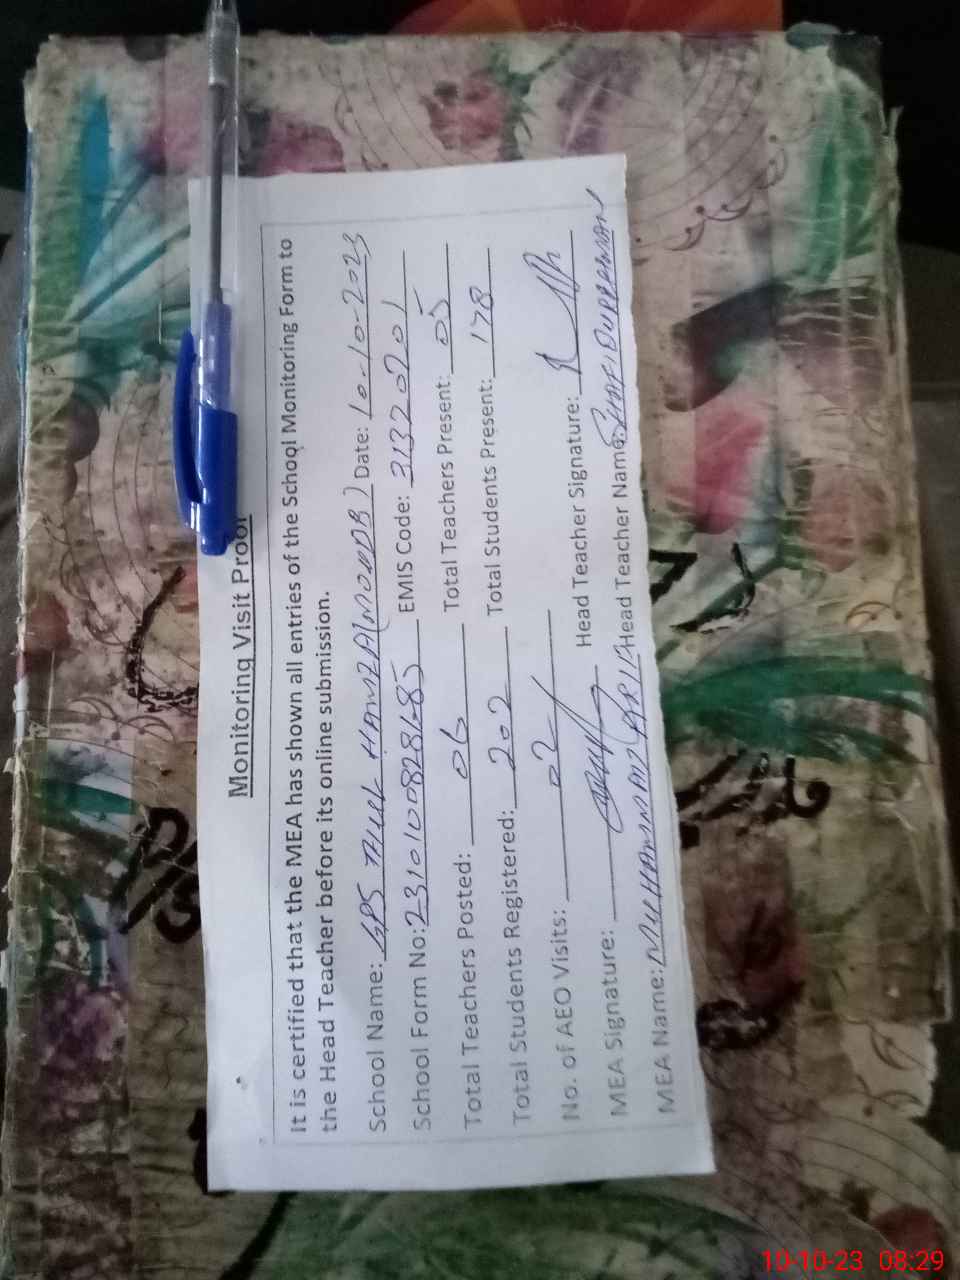 Monitoring Visit Proof
It is certified that the MEA has shown all entries of the School Monitoring Form to
the Head Teacher before its online submission.
School Name: GPS THUL HAMZA (MOUDB) Date: 10-10-2023
School Form No: EMIS Code: 31320201
Total Teachers Posted: 06 Total Teachers Present: 05
Total Students Registered: 202 Total Students Present: 178
No. of AEO Visits: 02
MEA Signature: Head Teacher Signature:
MEA Name: MUHAMMAD TARIQ Head Teacher Name:
10-10-23 08:29